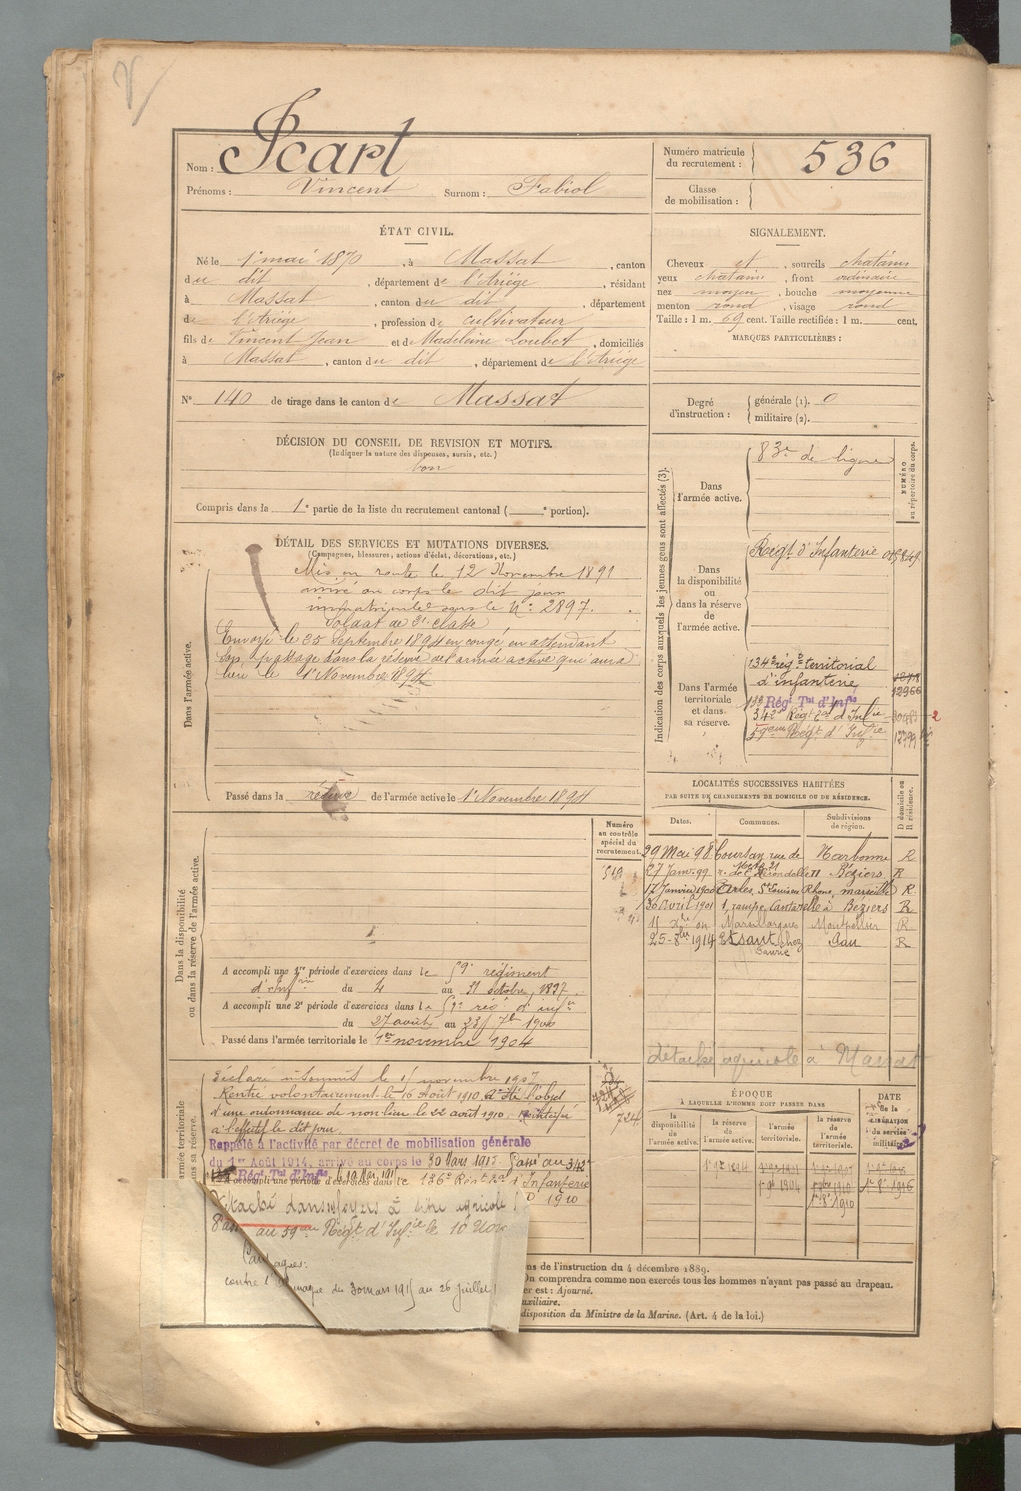 Nom : Icart
Prénoms : Vincent Surnom : Fabiol
Numéro matricule du recrutement : 536
Classe de mobilisation :
ÉTAT CIVIL.
Né le 1er mai 1870, à Massat, canton
du dit, département de l'Ariège, résidant
à Massat, canton du dit, département
de l'Ariège, profession de cultivateur
fils de Vincent Jean et de Madeleine Loubet, domiciliés
à Massat, canton du dit, département de l'Ariège
N° 140 de tirage dans le canton de Massat
SIGNALEMENT.
Cheveux et, sourcils châtains
yeux châtains, front ordinaire
nez moyen, bouche moyenne
menton rond, visage rond
Taille : 1 m. 69 cent. Taille rectifiée : 1 m. cent.
MARQUES PARTICULIÈRES :
Degré d'instruction : générale (1). 0
militaire (2).
DÉCISION DU CONSEIL DE REVISION ET MOTIFS.
(Indiquer la nature des dispenses, sursis, etc.)
bon
Compris dans la 1e partie de la liste du recrutement cantonal ( e portion).
DÉTAIL DES SERVICES ET MUTATIONS DIVERSES.
(Campagnes, blessures, actions d'éclat, décorations, etc.)
Dans l'armée active.
Mis en route le 12 Novembre 1891
arrivé au corps le dit jour
immatriculé sous le N° 2897.
Soldat de 2e classe
Envoyé le 25 Septembre 1894 en congé en attendant
son passage dans la réserve de l'armée active qui aura
lieu le 1er Novembre 1894
Passé dans la réserve de l'armée active le 1er Novembre 1894
Indication des corps auxquels les jeunes gens sont affectés (3).
NUMÉRO au répertoire du corps.
Dans l'armée active.
83e de ligne
Dans la disponibilité ou dans la réserve de l'armée active.
Régt d'Infanterie
Dans l'armée territoriale et dans sa réserve.
134e rég. territorial
d'infanterie
12966
Régt Tal d'Infie
342e Régt d'Infie
59eme Régt d'Infie
LOCALITÉS SUCCESSIVES HABITÉES
PAR SUITE DE CHANGEMENTS DE DOMICILE OU DE RÉSIDENCE.
Dates. Communes. Subdivisions de région. D domicile ou R résidence.
29 Mai 98 Coursan, rue de Narbonne R
27 Janv. 99 r. de l'Hirondelle 11 Béziers R
17 Janvier 1900 Arles, St Louis Rhône, Marseille R
30 avril 1901 1, rampe Cantarelle à Béziers R
Marsillargues Montpellier R
25-8bre 1914 Etsaut chez Pau R
Détaché agricole à Massat
Numéro au contrôle spécial du recrutement.
Dans la disponibilité ou dans la réserve de l'armée active.
A accompli une 1re période d'exercices dans le 59e régiment
d'infrie du 4 au 31 octobre 1897
A accompli une 2e période d'exercices dans le 59e rég. d'infie
du 27 août au 23 7bre 1900
Passé dans l'armée territoriale le 1er novembre 1904
Déclaré insoumis le 15 novembre 1907
Rentré volontairement le 16 Août 1910. A été l'objet
d'une ordonnance de non lieu le 22 août 1910.
à l'effectif le dit jour
724
Rappelé à l'activité par décret de mobilisation générale
du 1er Août 1914, arrivé au corps le 30 Mars 1915. Passé au 342e
Régt Tal d'Infie
A accompli une période d'exercices dans le 136e Régt Infanterie
1910
Détaché dans ses foyers à titre agricole
au 59eme Régt d'Infie le 10 Nov
Campagnes :
contre l'Allemagne du 30 mars 1915 au 26 juillet
ÉPOQUE
À LAQUELLE L'HOMME DOIT PASSER DANS
la disponibilité de l'armée active.
la réserve de l'armée active.
l'armée territoriale.
la réserve de l'armée territoriale.
DATE de la LIBÉRATION du service militaire.
1er 9bre 1894
1er 9bre 1904
1er 8bre 1910
1er 8bre 1916
ns de l'instruction du 4 décembre 1889.
On comprendra comme non exercés tous les hommes n'ayant pas passé au drapeau.
er est : Ajourné.
uxiliaire.
disposition du Ministre de la Marine. (Art. 4 de la loi.)